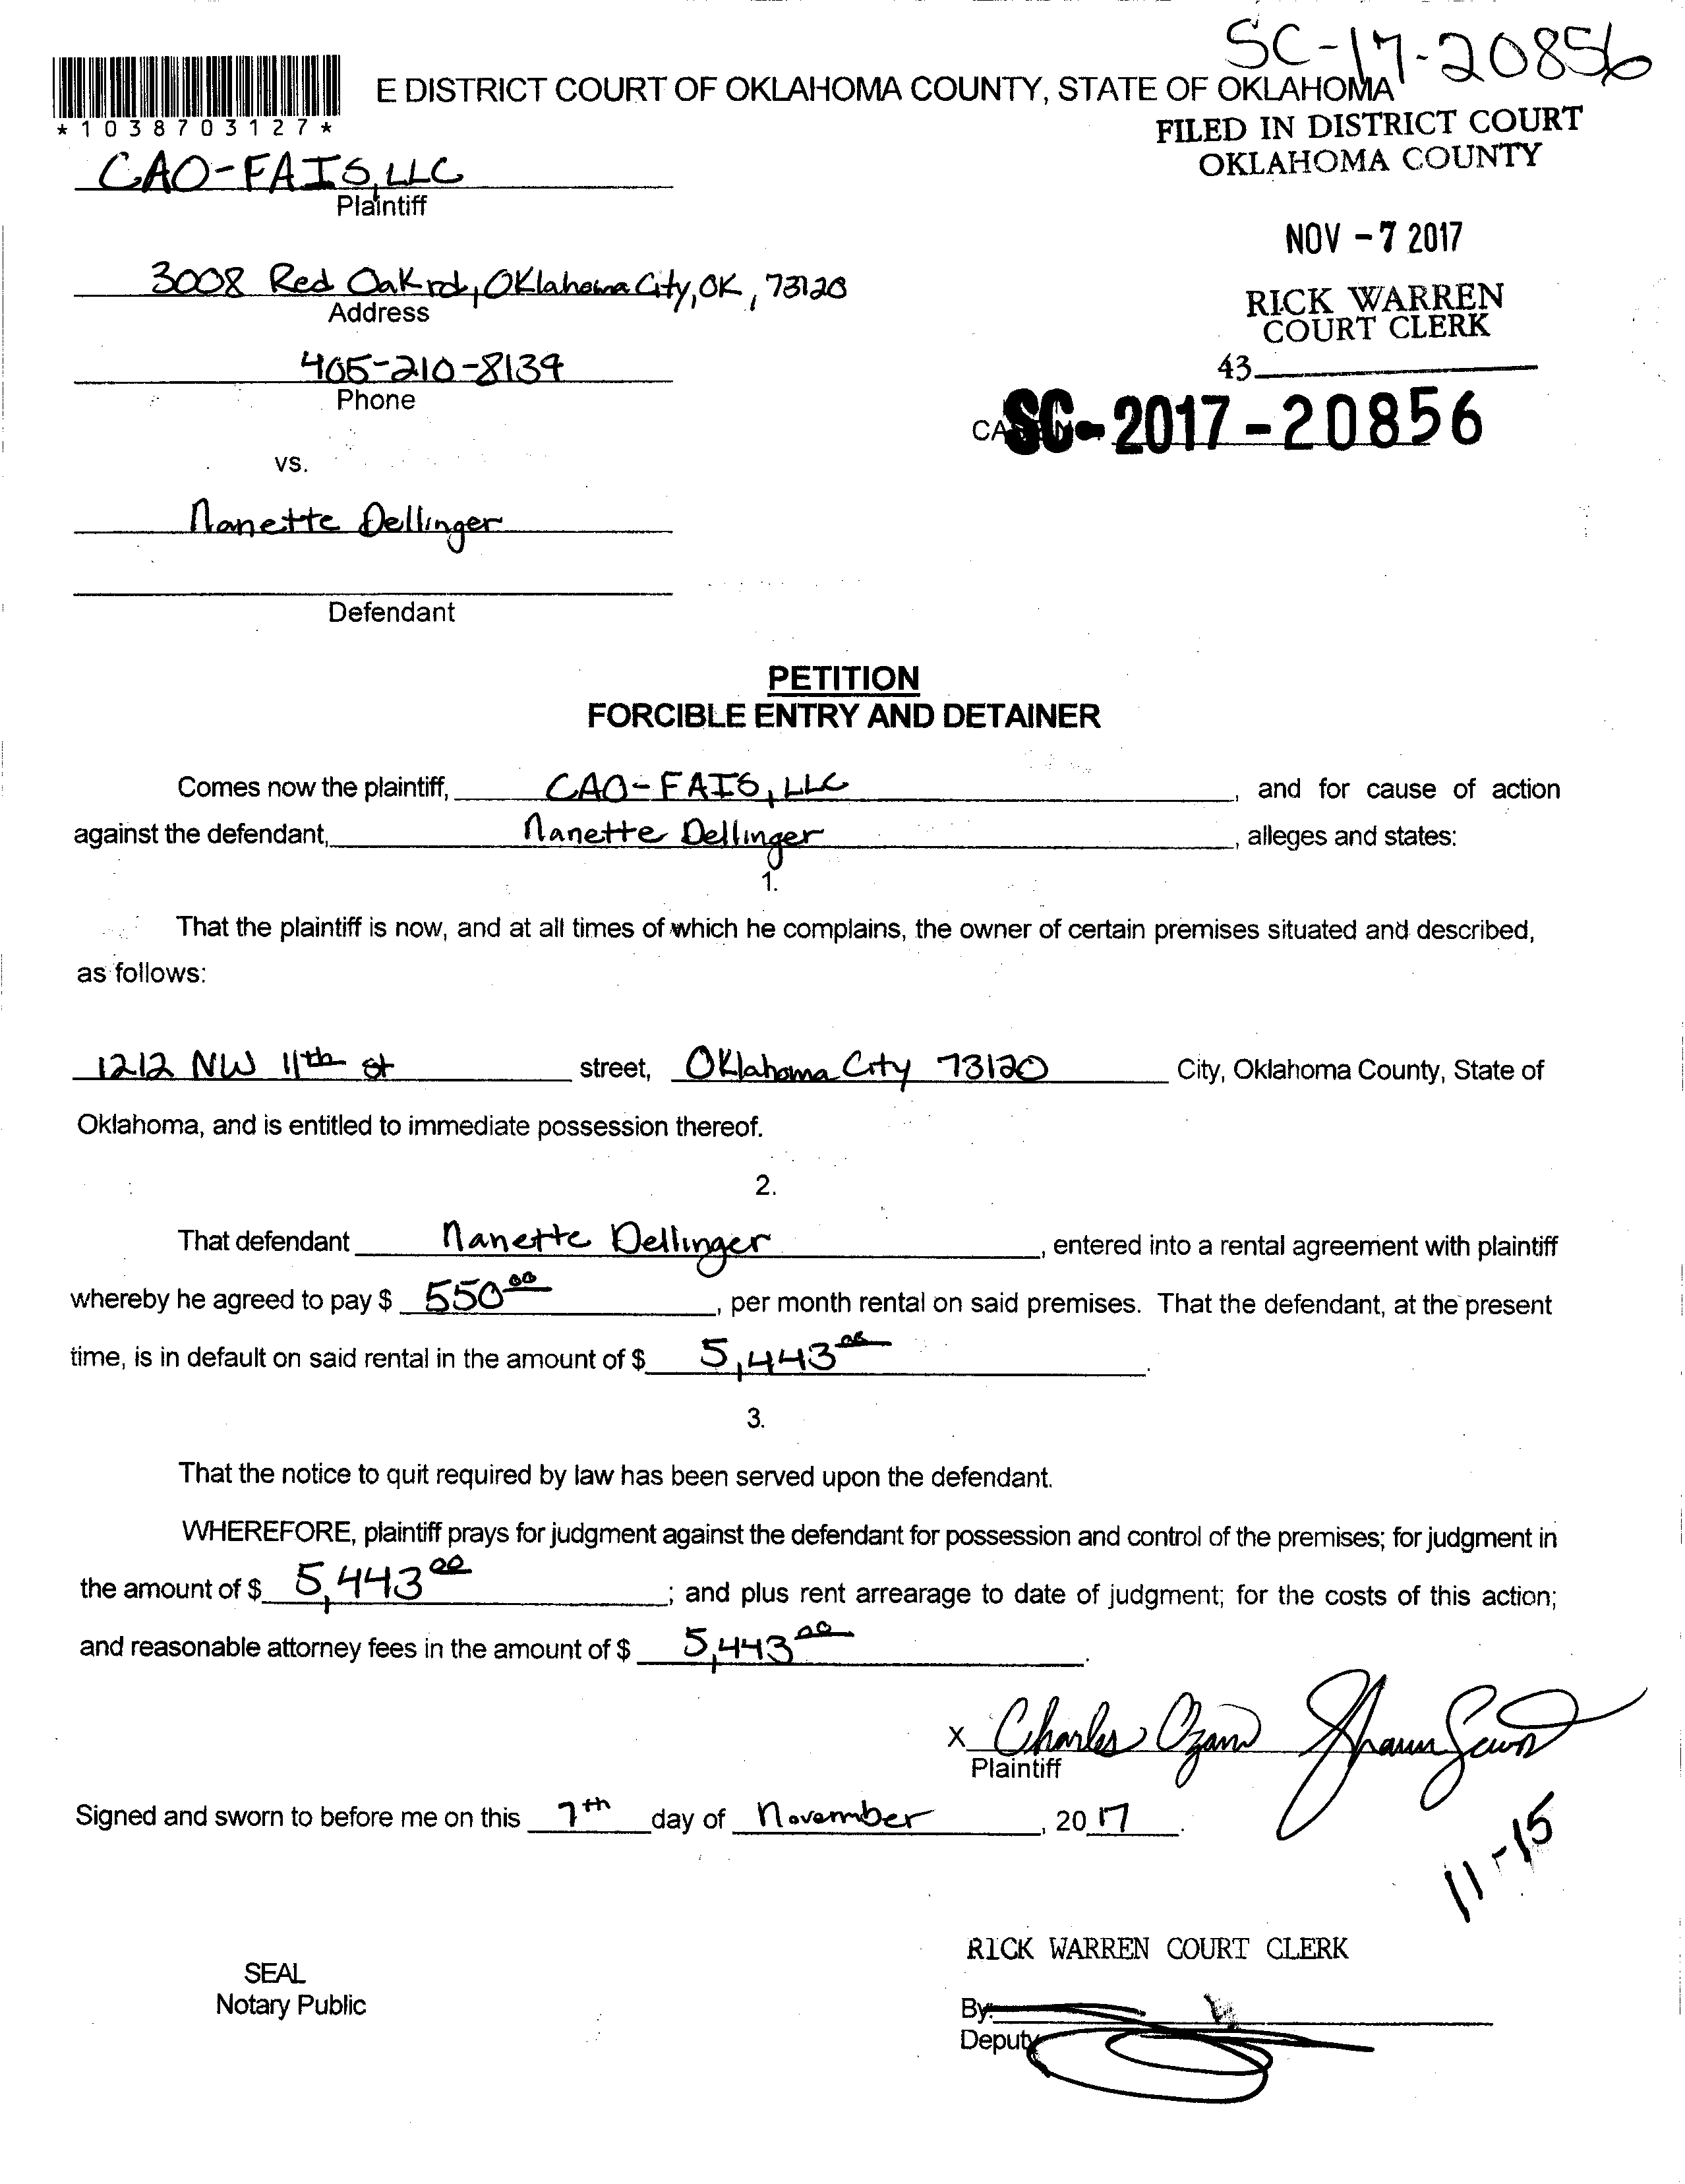 SC-17-20856
E DISTRICT COURT OF OKLAHOMA COUNTY, STATE OF OKLAHOMA
*1038703127*
FILED IN DISTRICT COURT
OKLAHOMA COUNTY
CAO-FAIS, LLC
Plaintiff
NOV - 7 2017
3008 Red Oak rd, Oklahoma City, OK, 73120
Address
RICK WARREN
COURT CLERK
405-210-8139
Phone
43
SC-2017-20856
vs.
Nanette Dellinger
Defendant
PETITION
FORCIBLE ENTRY AND DETAINER
Comes now the plaintiff, CAO-FAIS, LLC, and for cause of action
against the defendant, Nanette Dellinger, alleges and states:
1.
That the plaintiff is now, and at all times of which he complains, the owner of certain premises situated and described,
as follows:
1212 NW 11th st street, Oklahoma City 73120 City, Oklahoma County, State of
Oklahoma, and is entitled to immediate possession thereof.
2.
That defendant Nanette Dellinger, entered into a rental agreement with plaintiff
whereby he agreed to pay $ 550 00, per month rental on said premises. That the defendant, at the present
time, is in default on said rental in the amount of $ 5,443 00.
3.
That the notice to quit required by law has been served upon the defendant.
WHEREFORE, plaintiff prays for judgment against the defendant for possession and control of the premises; for judgment in
the amount of $ 5,443 00; and plus rent arrearage to date of judgment; for the costs of this action;
and reasonable attorney fees in the amount of $ 5,443 00.
X Charles Ozan Shaun
Plaintiff
Signed and sworn to before me on this 7th day of November, 2017.
11-15
RICK WARREN COURT CLERK
SEAL
Notary Public
By:
Deputy